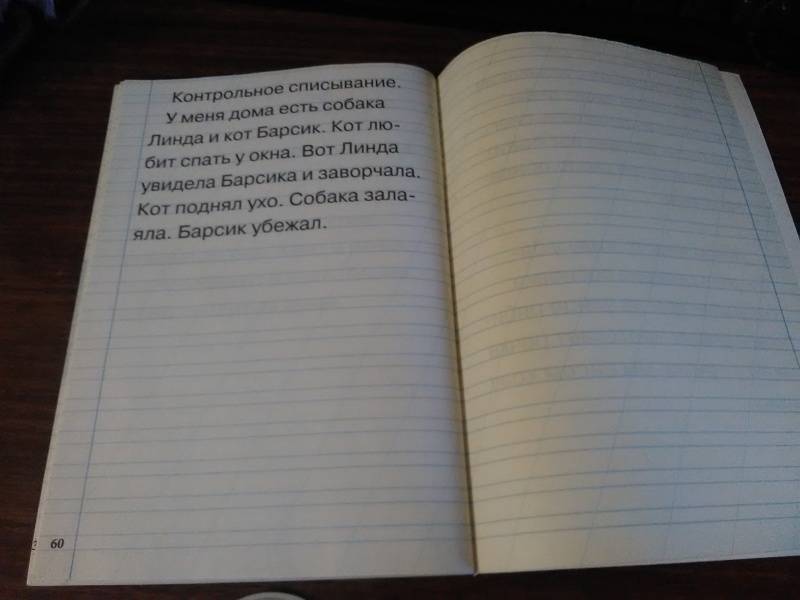 Контрольное списывание.
У меня дома есть собака
Линда и кот Барсик. Кот лю-
бит спать у окна. Вот Линда
увидела Барсика и заворчала.
Кот поднял ухо. Собака зала-
яла. Барсик убежал.
60